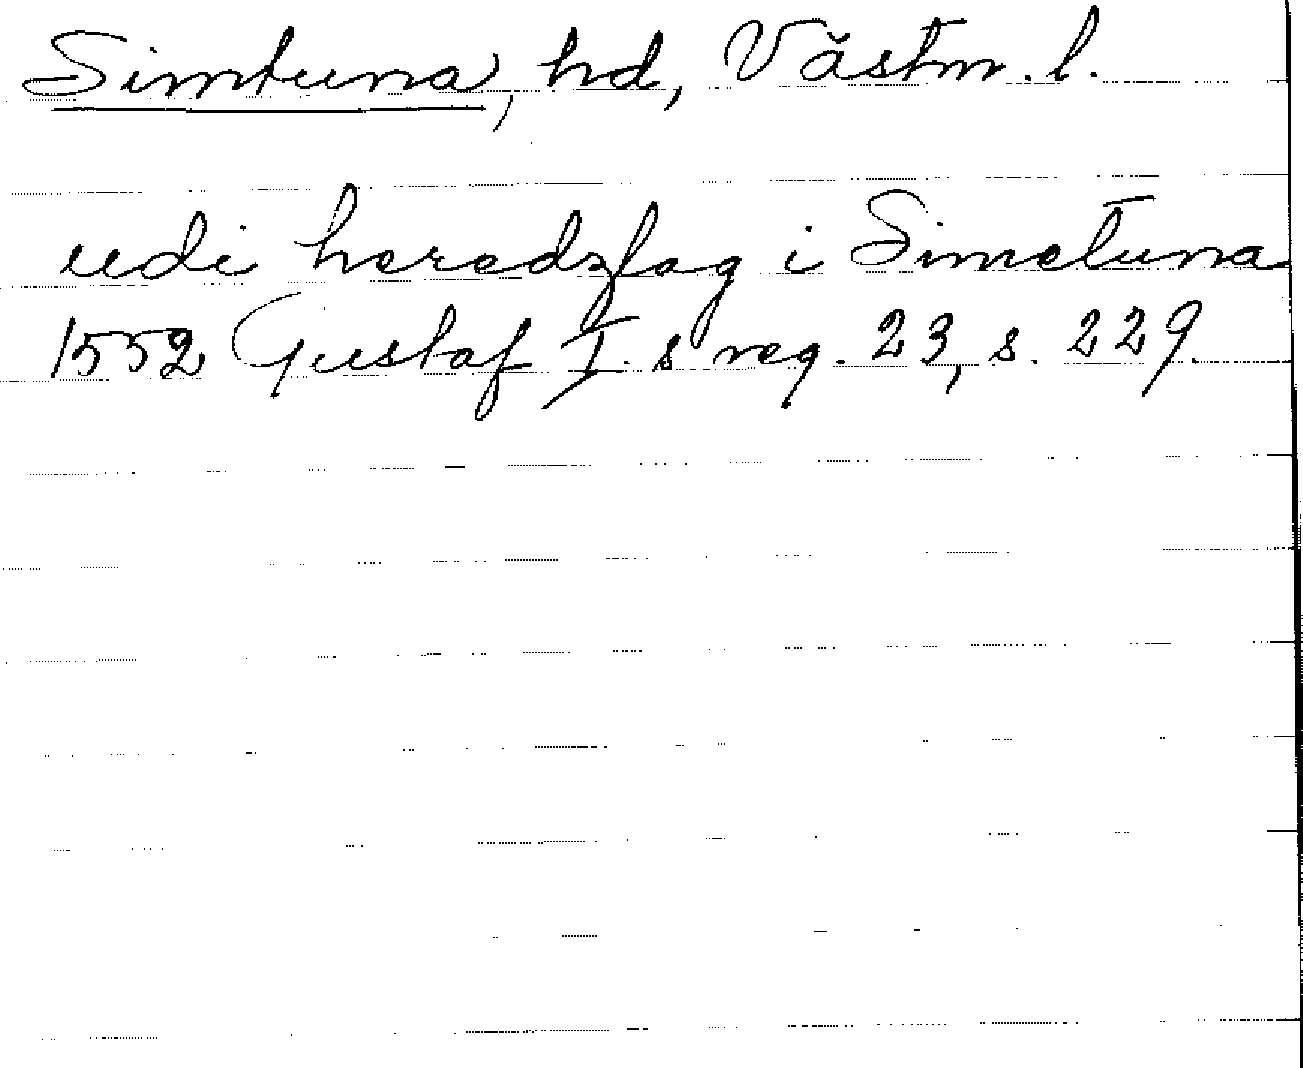 Simtuna, hd, Västm. l.
udi heredzlag i Simetuna
1552 Gustaf I. s reg. 23, s. 229.